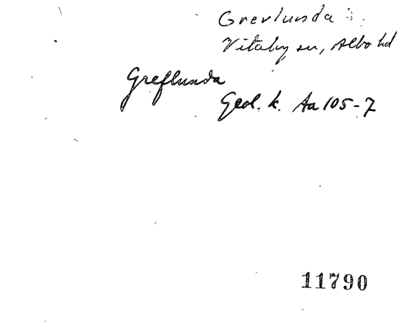 Grevlunda
Vitaby sn, Albo hd
Greflunda
Geol. k. Aa 105-7
11790